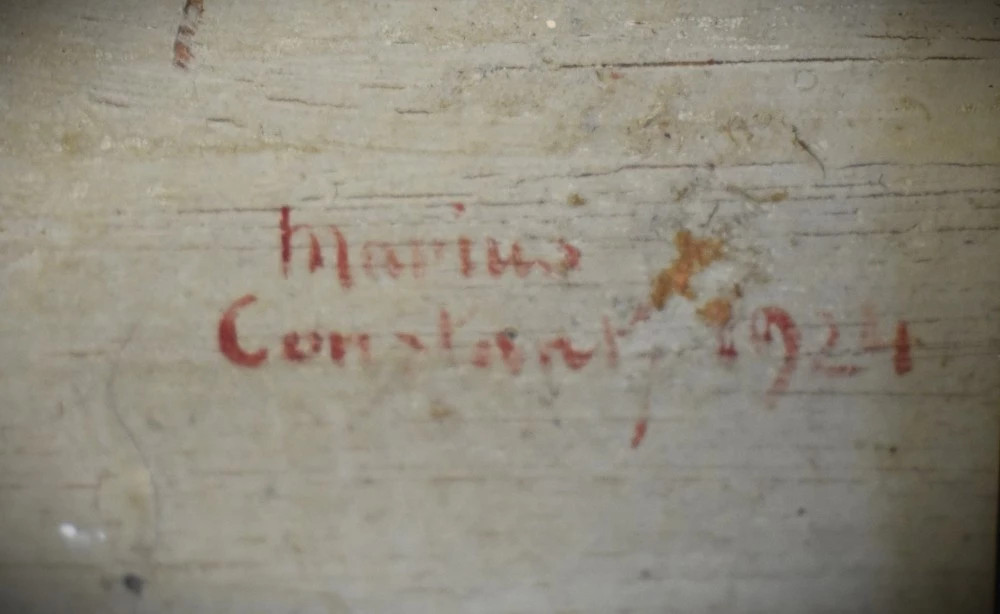 Marius
Constant, 1924